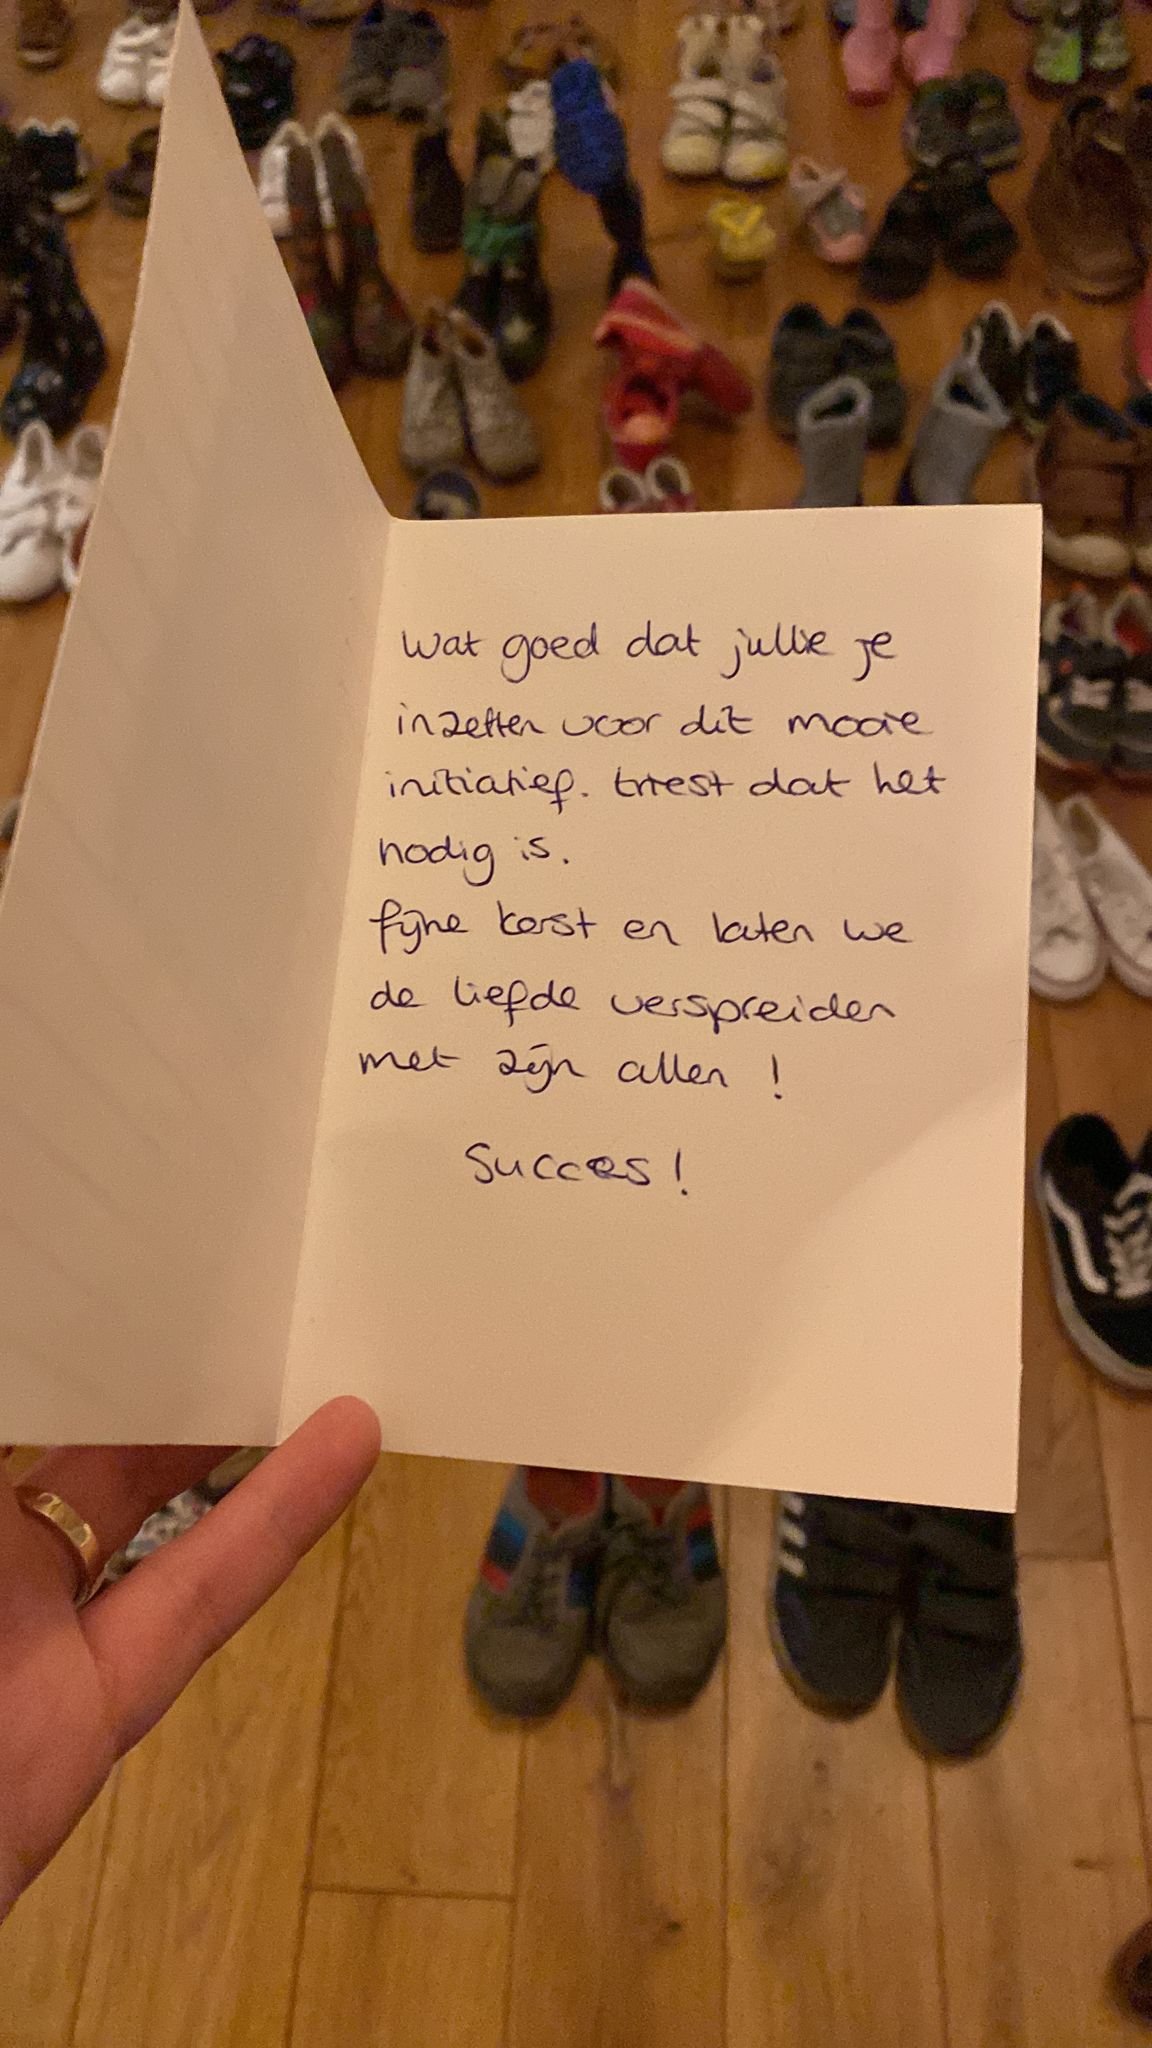 Wat goed dat jullie je
inzetten voor dit mooie
initiatief. triest dat het
nodig is.
fijne kerst en laten we
de liefde verspreiden
met zijn allen!
Succes!